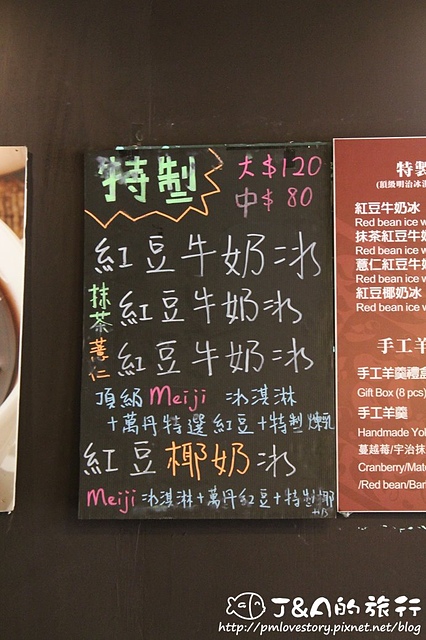 特製 大$120
中$80
紅豆牛奶冰
抹茶紅豆牛奶冰
薏仁紅豆牛奶冰
頂級Meiji 冰淇淋
+萬丹特選紅豆+特製煉乳
紅豆椰奶冰
Meiji冰淇淋+萬丹紅豆+特製椰
特製
(頂級明治冰淇
紅豆牛奶冰
Red bean ice w
抹茶紅豆牛奶
Red bean ice w
薏仁紅豆牛奶
Red bean ice w
紅豆椰奶冰
Red bean ice w
手工羊
手工羊羹禮盒
Gift Box (8 pcs)
手工羊羹
Handmade Yo
蔓越莓/宇治抹
Cranberry/Mat
/Red bean/Bar
J&A的旅行
http://pmlovestory.pixnet.net/blog